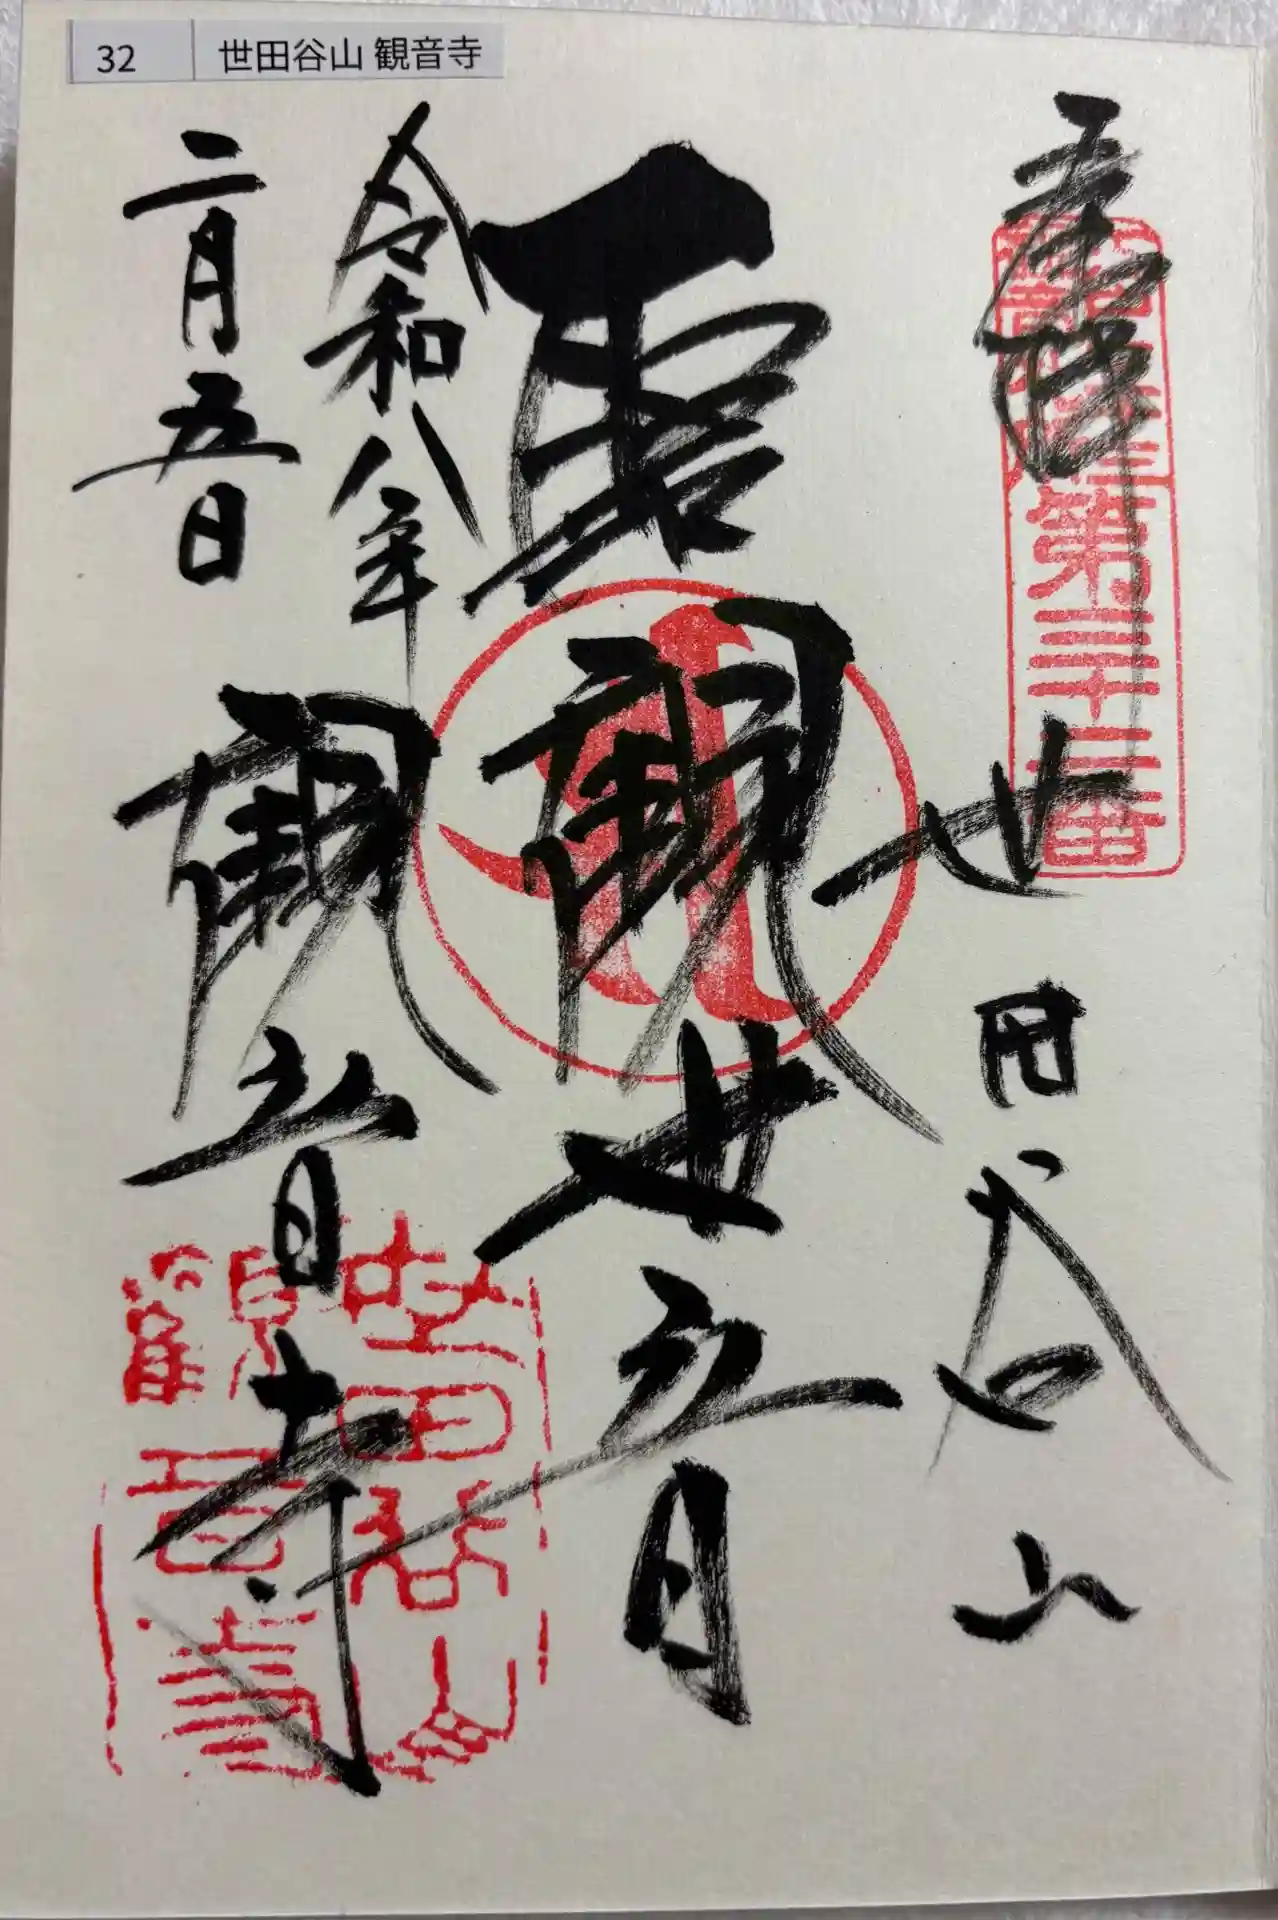 32 世田谷山 観音寺
奉拝
第三十二番
世田谷山
聖観世音
令和八年
二月五日
観音寺
世田谷山
観音寺